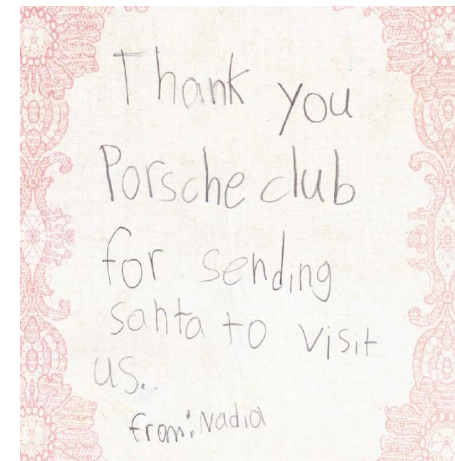 Thank you
Porsche club
for sending
santa to visit
us..
from: Nadia